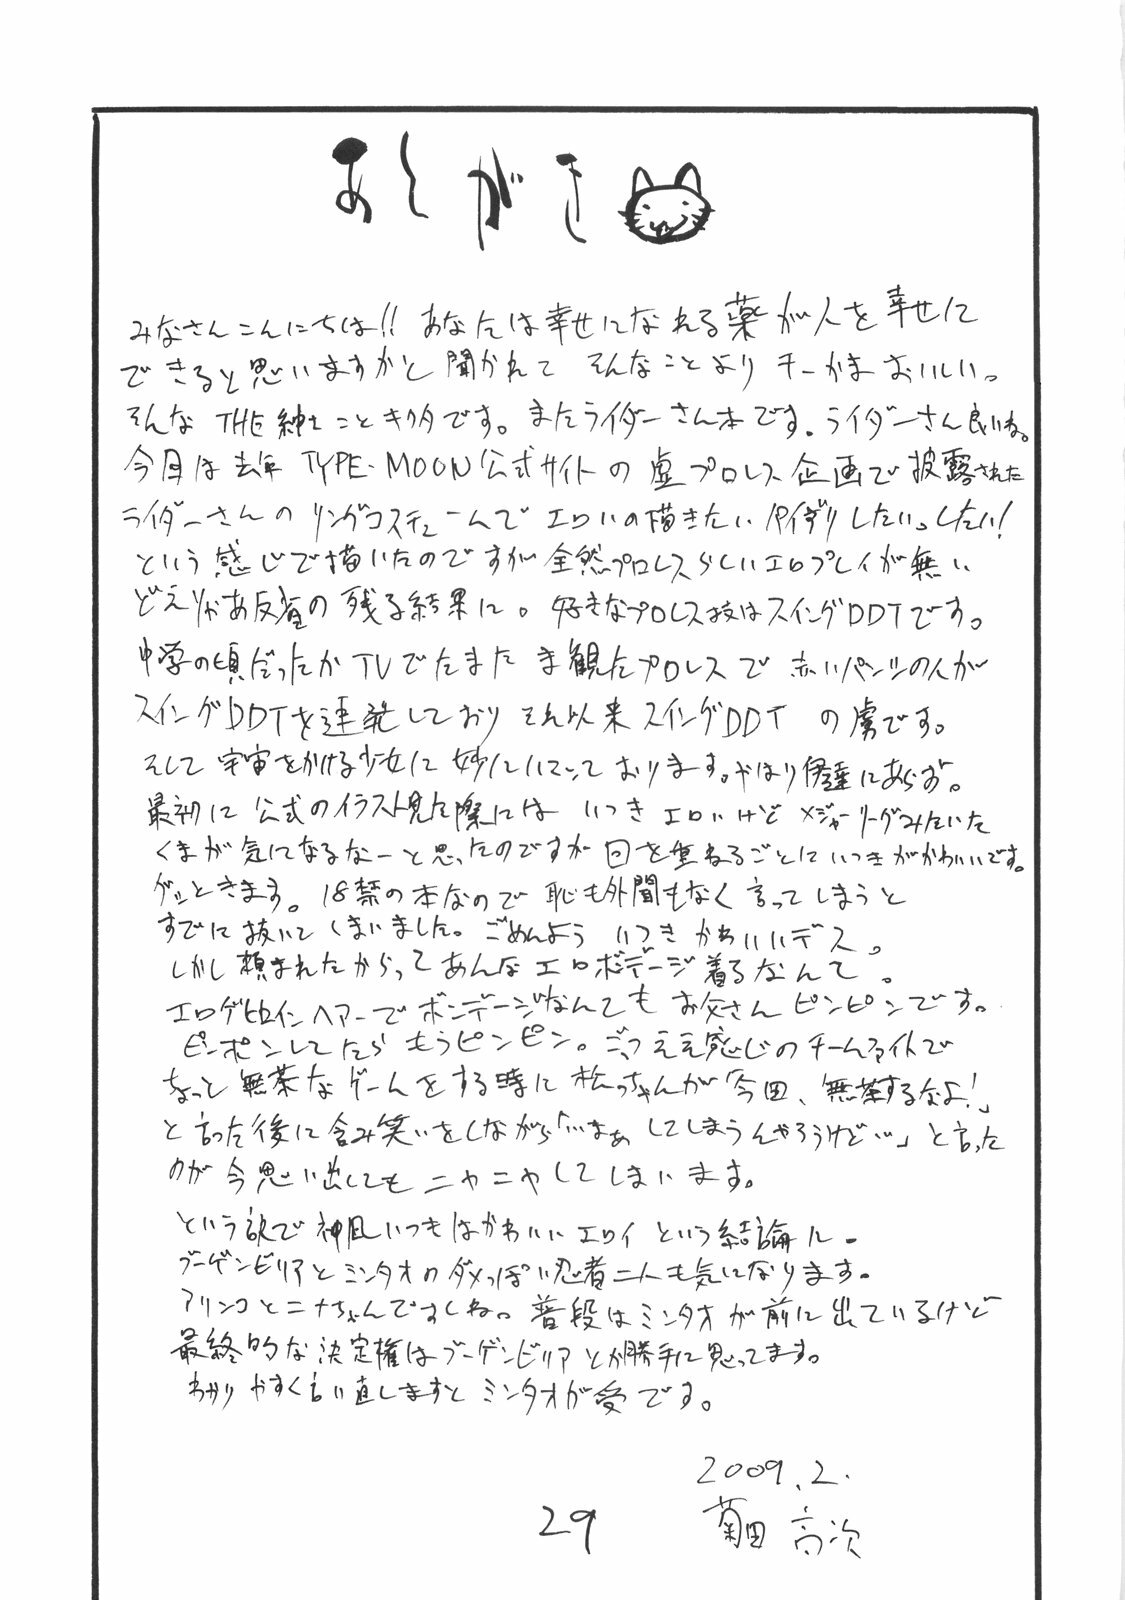 あとがき
みなさんこんにちは!! あなたは幸せになれる薬が人を幸せに
できると思いますかと聞かれて そんなことより チーかま おいしい。
そんな THE紳士こと キクタです。またライダーさん本です。ライダーさん良いね。
今回は去年 TYPE-MOON公式サイトの虚プロレス企画で披露された
ライダーさんの リングコスチュームで エロいの描きたい パイずりしたいっしたい!
という感じで描いたのですが全然プロレスらしいエロプレイが無い
どえりゃあ反省の残る結果に。好きなプロレス技はスイングDDTです。
中学の頃だったか TVでたまたま観たプロレスで 赤いパンツの人が
スイングDDTを連発しており それ以来 スイングDDT の虜です。
そして 宇宙をかける少女に 妙にハマっております。やはり伊達にあらず。
最初に 公式のイラスト見た際には いつき エロいけど メジャーリーグみたいな
くまが 気になるなーと思ったのですが 回を重ねるごとに いつきがかわいいです。
グッときます。18禁の本なので 恥も外聞もなく 言ってしまうと
すでに 抜いて しまいました。ごめんよう いつき かわいいデス。
しかし頼まれたからってあんな エロボンデージ 着るなんて。
エロゲヒロインヘアーで ボンデージなんてもう お父さん ピンピンです。
ピンポンしてたら もうピンピン。ごっつええ感じのチームファイトで
ちょっと 無茶なゲームをする時に 松っちゃんが「今田、無茶するなよ!」
と言った後に 含み笑いをしながら「…まぁ してしまうんやろうけど…」と言った
のが 今思い出しても ニヤニヤしてしまいます。
という訳で 神凪いつきはかわいい エロイ という結論に。
ブーゲンビリアとミンタオの ダメっぽい忍者二人も気になります。
アリンコとニナちゃんですしね。普段は ミンタオが 前に出ているけど
最終的な決定権は ブーゲンビリア とか勝手に思ってます。
わかりやすく言い直しますと ミンタオが受です。
2009.2.
菊田 高次
29